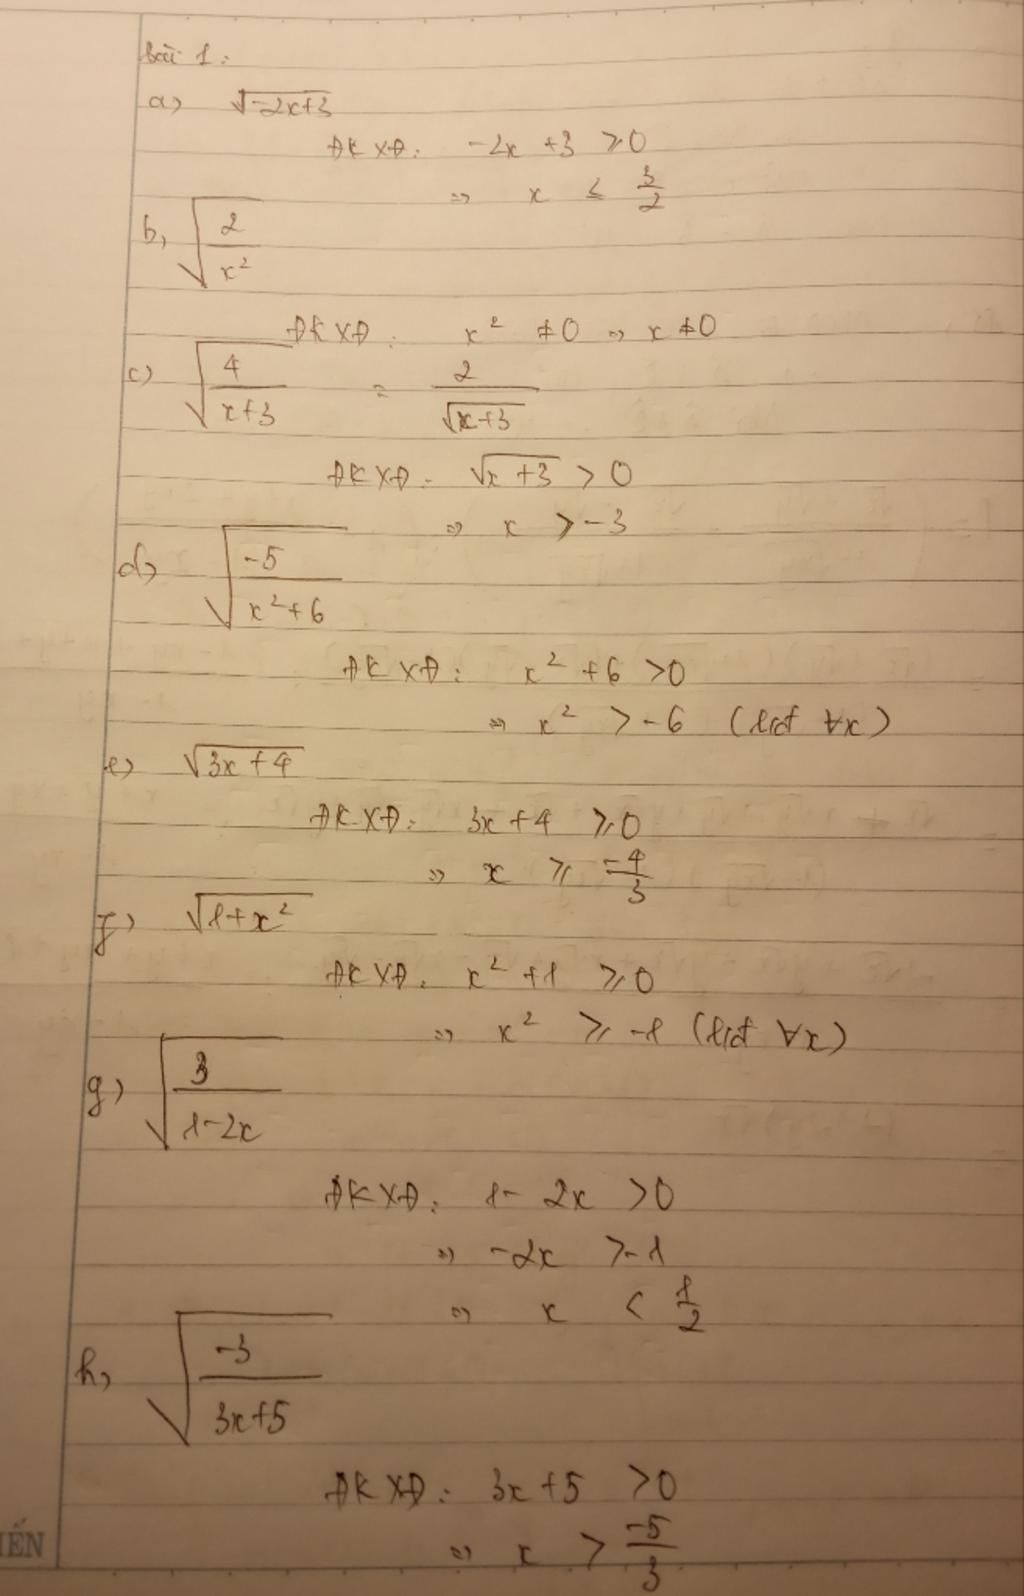 bài 1:
a) √(-2x+3)
ĐKXĐ: -2x +3 ≥ 0
=> x ≤ 3/2
b, √(2/x²)
ĐKXĐ: x² ≠ 0 => x ≠ 0
c) √(4/(x+3)) = 2/√(x+3)
ĐKXĐ: √(x+3) > 0
=> x > -3
d, √(-5/(x²+6))
ĐKXĐ: x² +6 > 0
=> x² > -6 (lđ ∀x)
e) √(3x+4)
ĐKXĐ: 3x +4 ≥ 0
=> x ≥ -4/3
f) √(1+x²)
ĐKXĐ: x² +1 ≥ 0
=> x² ≥ -1 (lđ ∀x)
g) √(3/(1-2x))
ĐKXĐ: 1- 2x > 0
=> -2x > -1
=> x < 1/2
h, √(-3/(3x+5))
ĐKXĐ: 3x +5 > 0
=> x > -5/3
IẾN